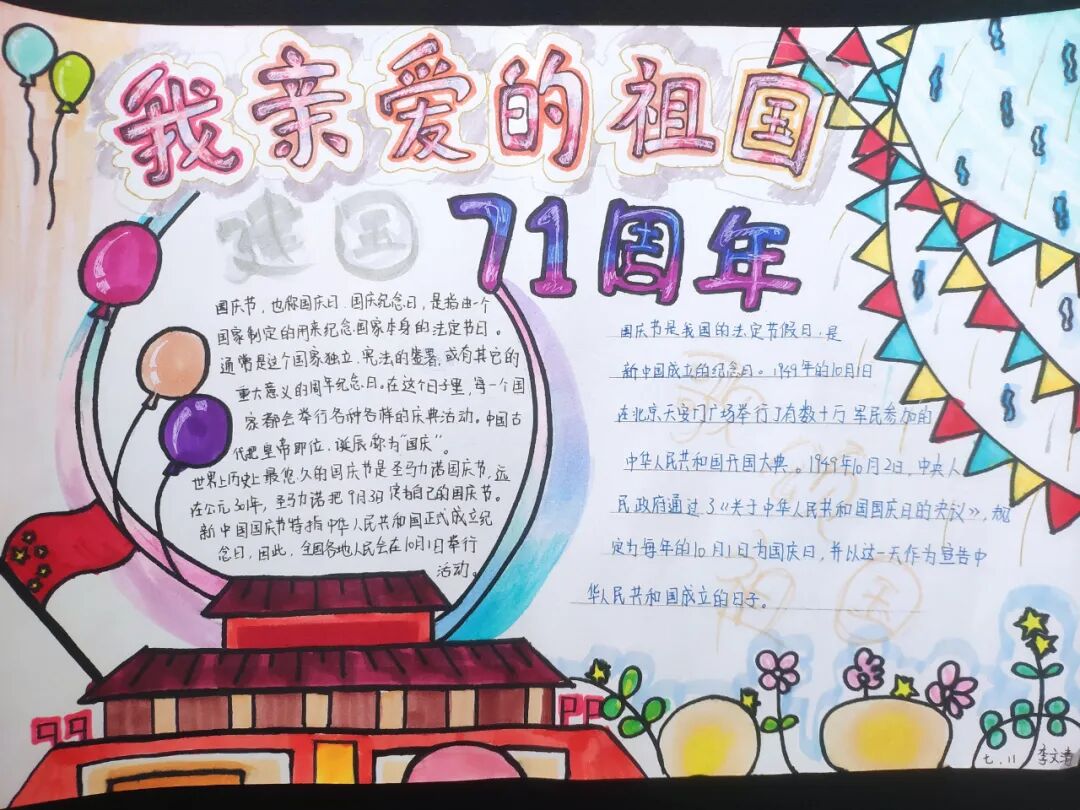 我亲爱的祖国
建国
71周年
国庆节，也称国庆日、国庆纪念日，是指由一个
国家制定的用来纪念国家本身的法定节日。
通常是这个国家独立、宪法的签署、或有其它的
重大意义的周年纪念日。在这个日子里，每一个国
家都会举行各种各样的庆典活动。中国古
代把皇帝即位、诞辰称为“国庆”。
世界上历史上最悠久的国庆节是圣马力诺国庆节，远
在公元301年，圣马力诺把9月3日定为自己的国庆节。
新中国国庆节特指中华人民共和国正式成立纪
念日，因此，全国各地人民会在10月1日举行
活动。
国庆节是我国的法定节假日，是
新中国成立的纪念日。1949年的10月1日
在北京天安门广场举行了有数十万军民参加的
中华人民共和国开国大典。1949年10月2日，中央人
民政府通过了《关于中华人民共和国国庆日的决议》，规
定为每年的10月1日为国庆日，并以这一天作为宣告中
华人民共和国成立的日子。
歌颂
祖国
七.11 李文